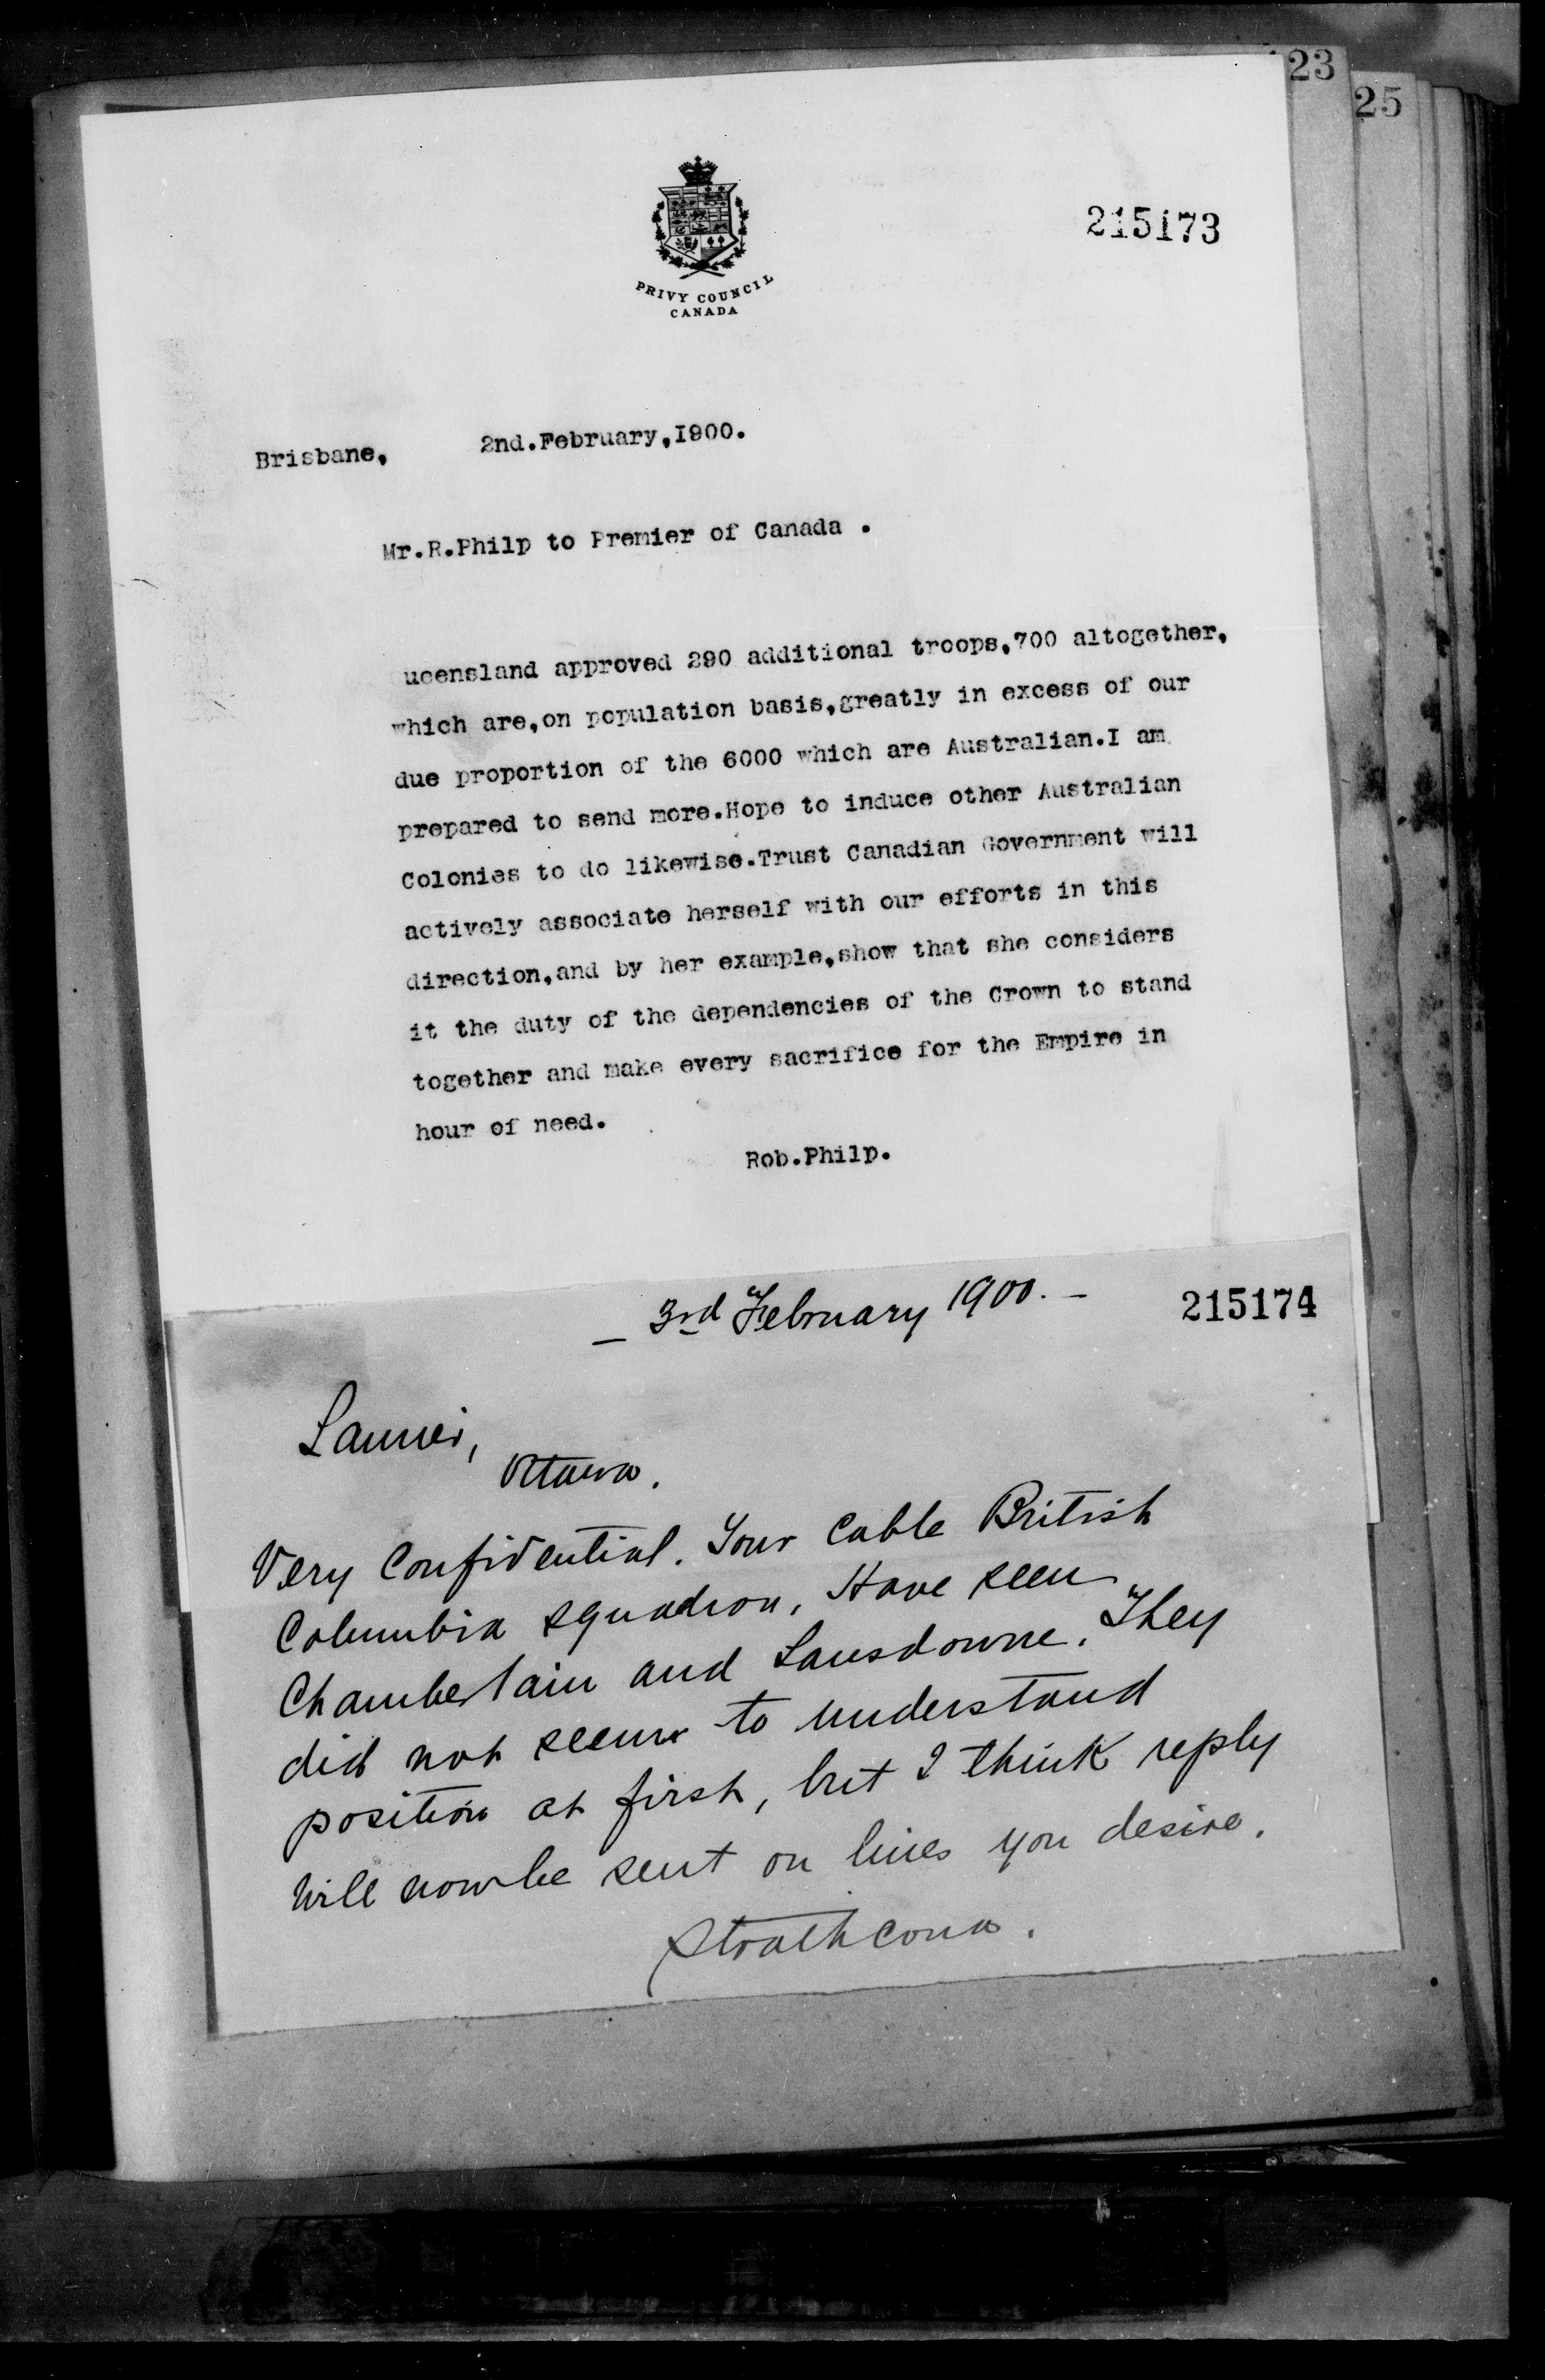 23
25
215173
PRIVY COUNCIL
CANADA
Brisbane, 2nd.February,I900.
Mr.R.Philp to Premier of Canada .
ueensland approved 290 additional troops,700 altogether,
which are,on population basis,greatly in excess of our
due proportion of the 6000 which are Australian.I am
prepared to send more.Hope to induce other Australian
Colonies to do likewise.Trust Canadian Government will
actively associate herself with our efforts in this
direction,and by her example,show that she considers
it the duty of the dependencies of the Crown to stand
together and make every sacrifice for the Empire in
hour of need.
Rob.Philp.
— 3rd February 1900. —
215174
Laurier,
Ottawa.
Very Confidential. Your Cable British
Columbia squadron, Have seen
Chamberlain and Lansdowne. They
did not seem to understand
position at first, but I think reply
will now be sent on lines you desire.
Strathcona.